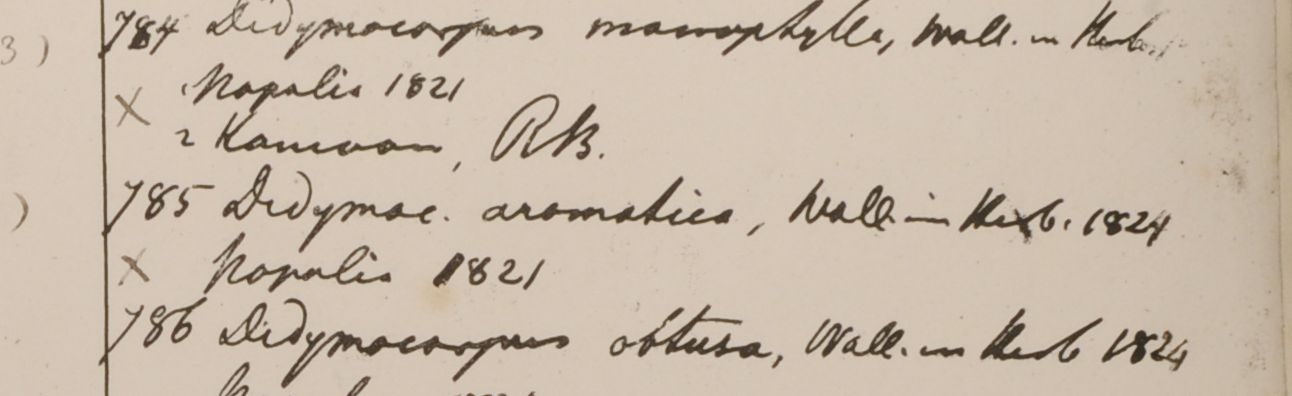 3) 784 Didymocarpus macrophylla, Wall. in Herb.
× Napalia 1821
2 Kamaon, RB.
) 785 Didymoc. aromatica, Wall. in Herb. 1824
× Napalia 1821
786 Didymocarpus obtusa, Wall. in Herb 1824